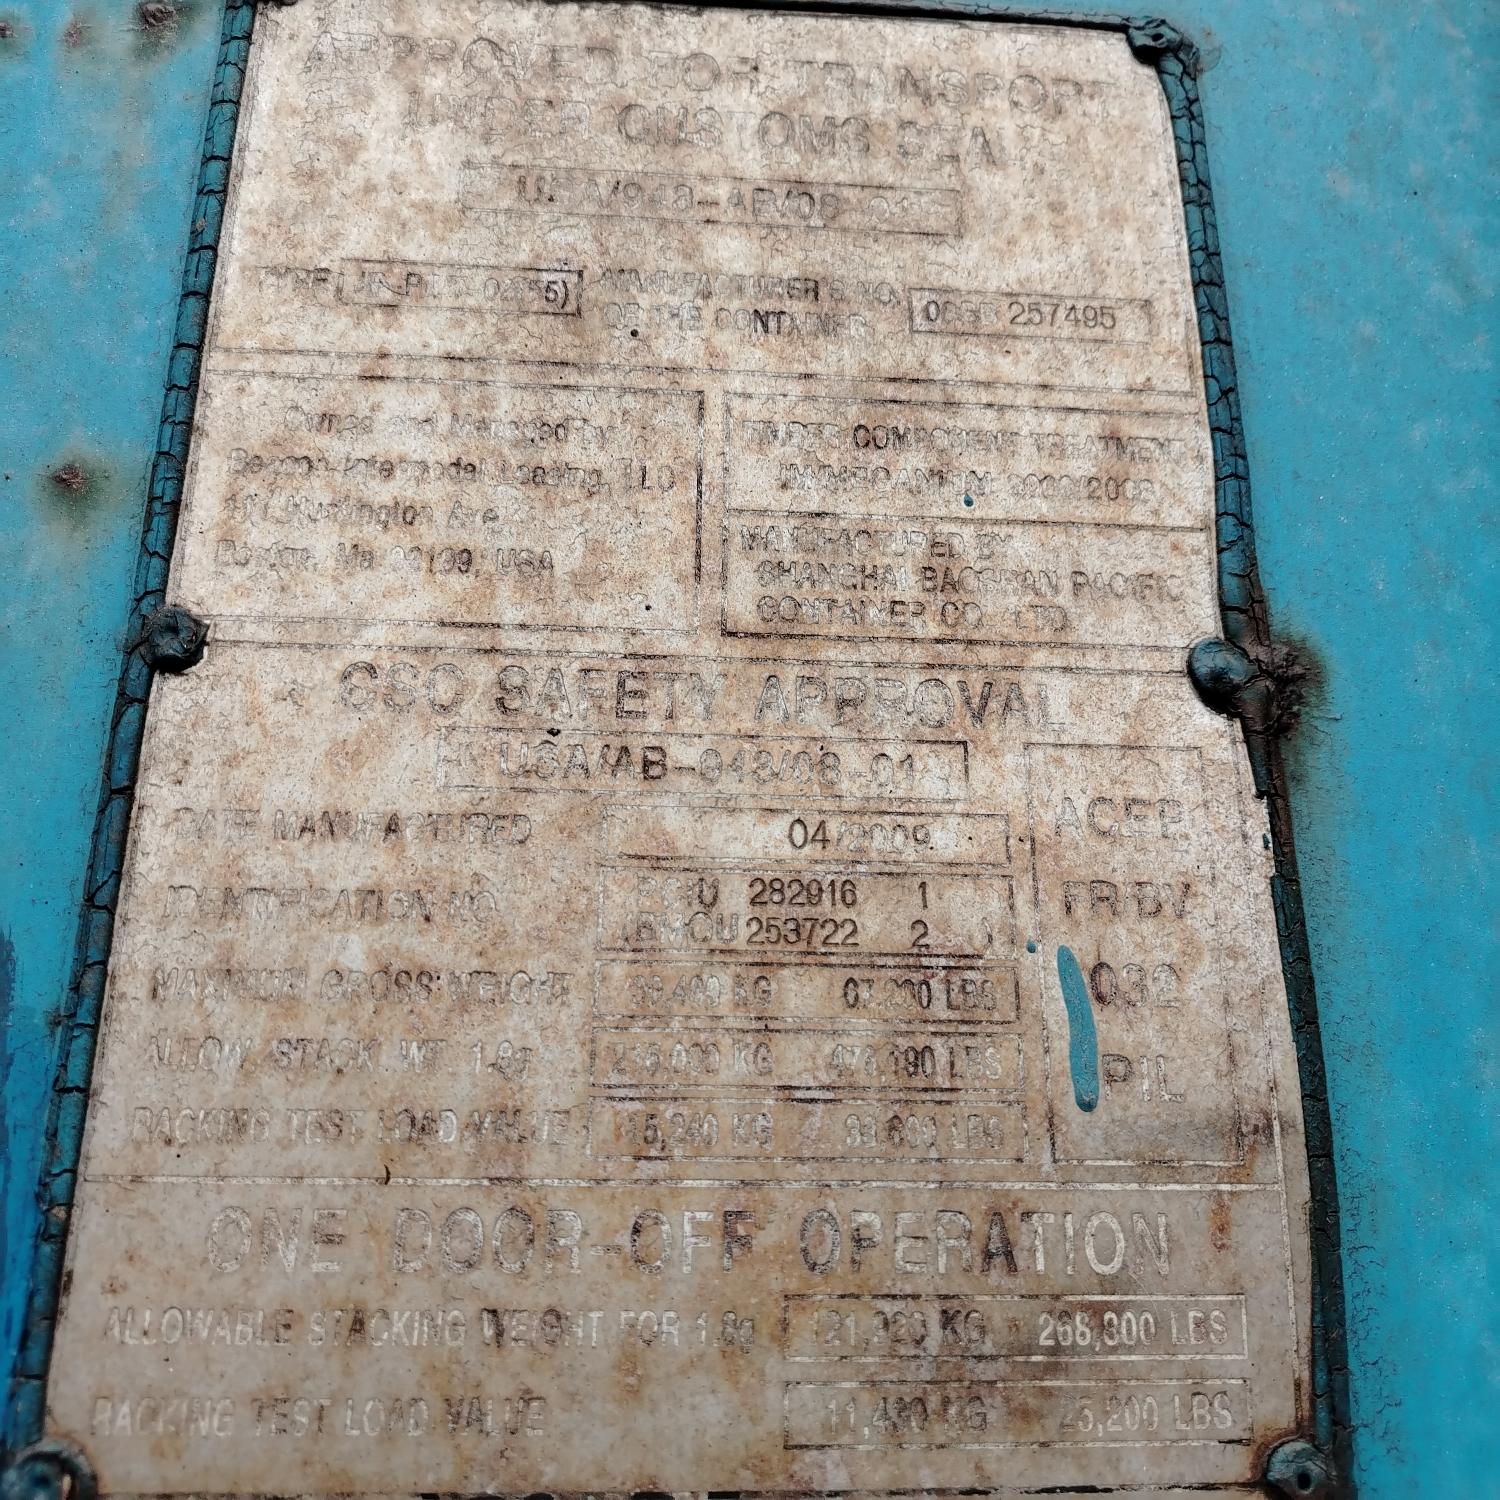 APPROVED FOR TRANSPORT
UNDER CUSTOMS SEAL
USA/943-AB/08-01
TYPE MANUFACTURER'S NO.
OF THE CONTAINER 257495
Owned and Managed by
Beacon Intermodal Leasing, LLC
Huntington Ave.
Boston, Ma 02199, USA
TIMBER COMPONENT TREATMENT
MANUFACTURED BY
SHANGHAI BAOSHAN PACIFIC
CONTAINER CO., LTD
CSC SAFETY APPROVAL
USA/AB-943/08-01
DATE MANUFACTURED 04/2009
IDENTIFICATION NO. 282916 1
253722 2
MAXIMUM GROSS WEIGHT 30,480 KG 67,200 LBS
ALLOW. STACK WT. 1.8g 216,000 KG 476,190 LBS
RACKING TEST LOAD VALUE 15,240 KG 33,600 LBS
ACEP
FR/BV
032
PIL
ONE DOOR-OFF OPERATION
ALLOWABLE STACKING WEIGHT FOR 1.8g 121,920 KG 268,800 LBS
RACKING TEST LOAD VALUE KG 25,200 LBS